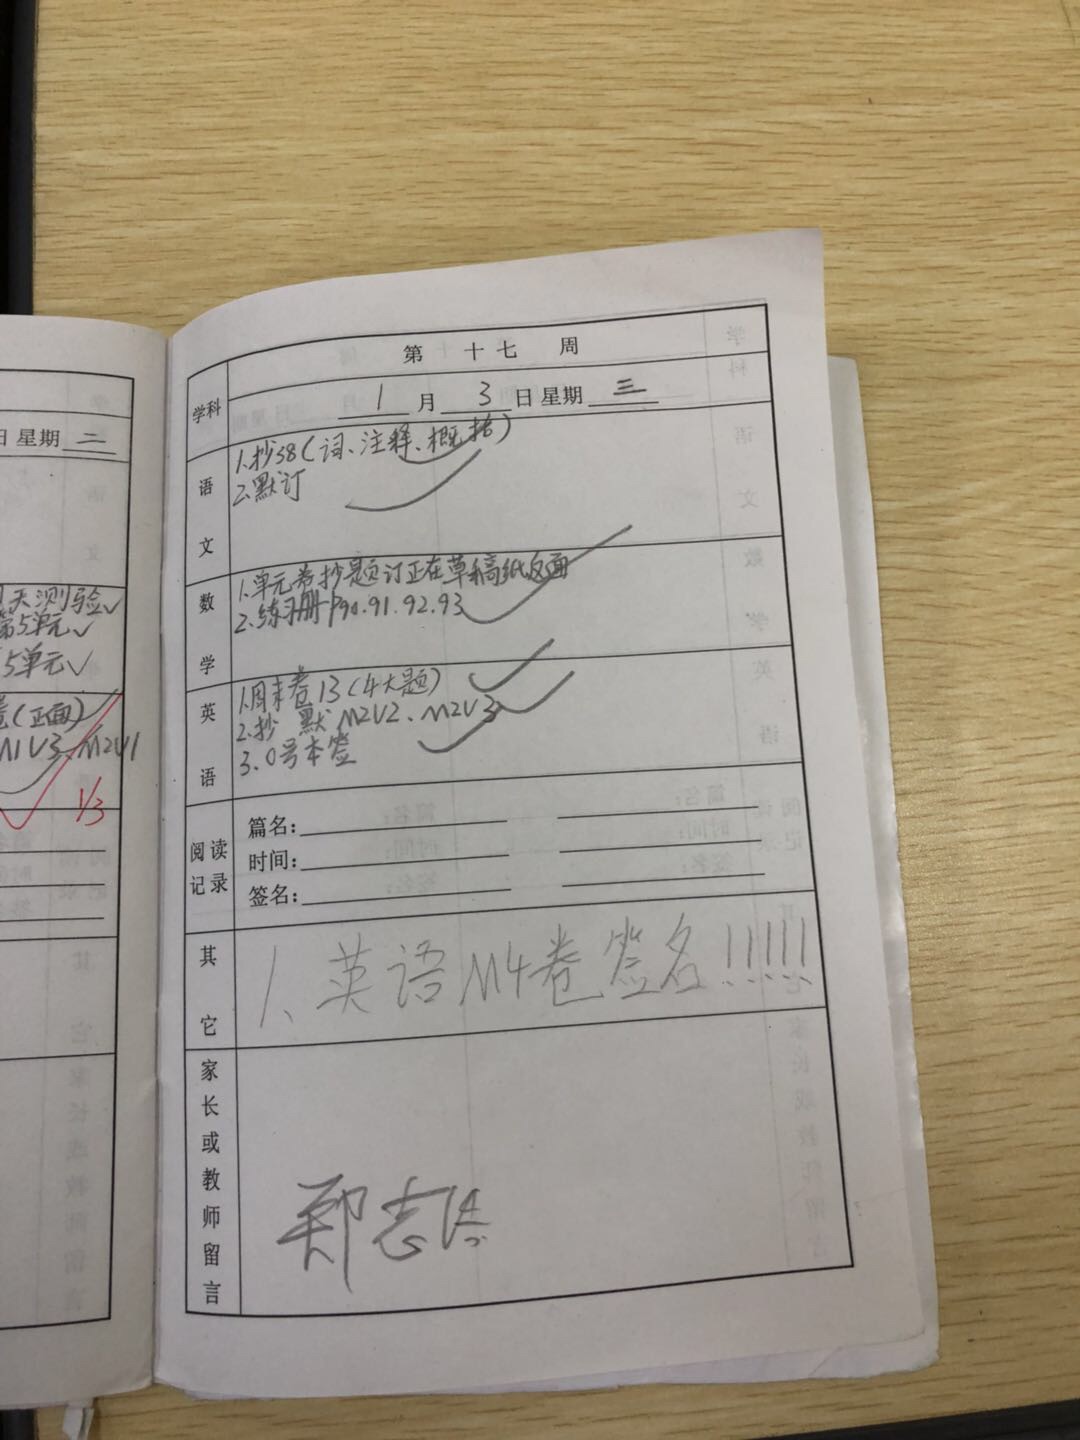 日 星期 二
天测验✓
第5单元✓
5单元✓
卷(正面)
M1U3、M2U1
1/3
第 十七 周
学科
1 月 3 日 星期 三
语文
1.抄38(词、注释、概括)
2.默订
数学
1.单元卷抄题订正在草稿纸反面
2.练习册P90.91.92.93
英语
1.周末卷13(4大题)
2.抄 默 M2U2、M2U3
3.0号本签
阅读记录
篇名:
时间:
签名:
其它
1、英语M4卷签名!!!!!
家长或教师留言
郑志